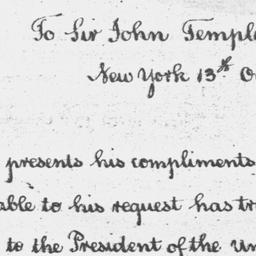 To Sir John Templ
New York 13th O
presents his compliments
able to his request has tr
to the President of the Un